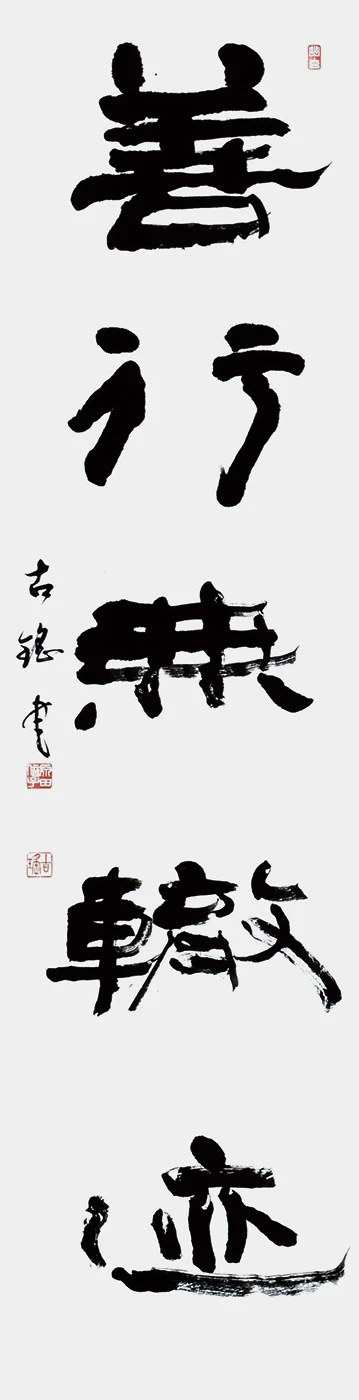 善行無轍迹
古書